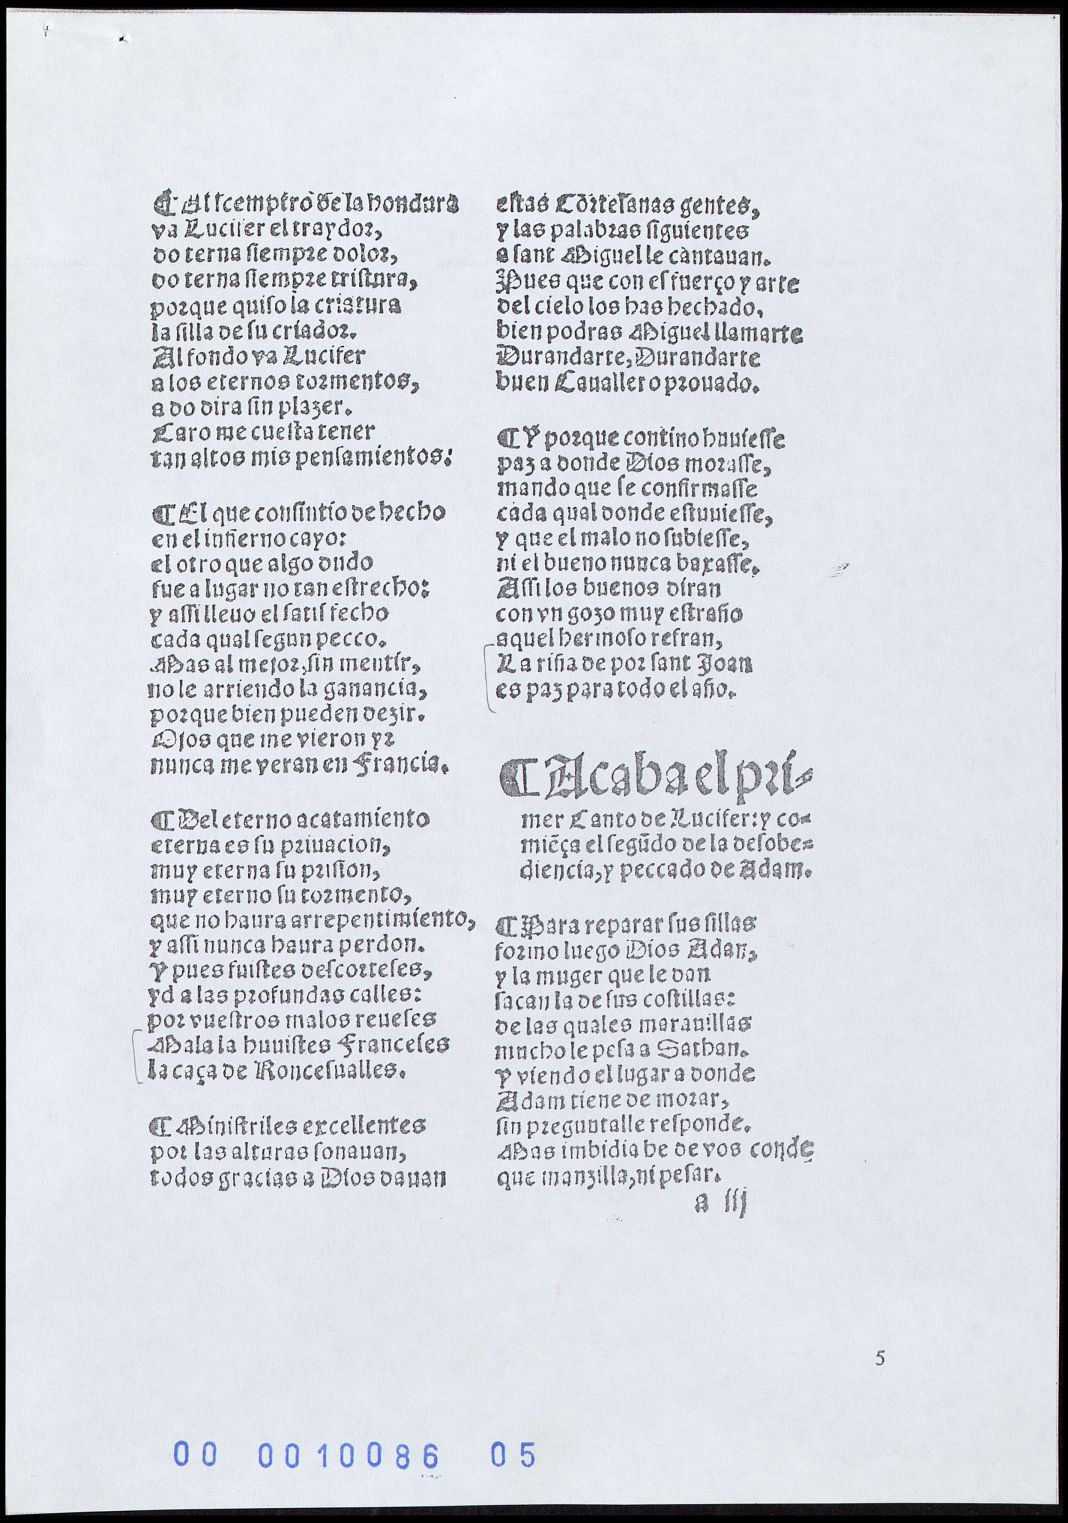 ¶ Al scemptro de la hondura
va Lucifer el traydor,
do terna siempre dolor,
do terna siempre tristura,
porque quiso la criatura
la silla de su criador.
Al fondo va Lucifer
a los eternos tormentos,
a do dira sin plazer.
Caro me cuesta tener
tan altos mis pensamientos:
¶ El que consintio de hecho
en el infierno cayo:
el otro que algo dudo
fue a lugar no tan estrecho:
y assi lleuo el satisfecho
cada qual segun pecco.
Mas al mejor, sin mentir,
no le arriendo la ganancia,
porque bien pueden dezir.
Ojos que me vieron yr
nunca me veran en Francia.
¶ Del eterno acatamiento
eterna es su priuacion,
muy eterna su prision,
muy eterno su tormento,
que no haura arrepentimiento,
y assi nunca haura perdon.
Y pues fuistes descorteses,
yd a las profundas calles:
por vuestros malos reueses
Mala la huuistes Franceses
la caça de Roncesualles.
¶ Ministriles excellentes
por las alturas sonauan,
todos gracias a Dios dauan
estas Cortesanas gentes,
y las palabras siguientes
a sant Miguel le cantauan.
Pues que con esfuerço y arte
del cielo los has hechado,
bien podras Miguel llamarte
Durandarte, Durandarte
buen Cauallero prouado.
¶ Y porque contino huuiesse
paz a donde Dios morasse,
mando que se confirmasse
cada qual donde estuuiesse,
y que el malo no subiesse,
ni el bueno nunca baxasse.
Assi los buenos diran
con vn gozo muy estraño
aquel hermoso refran,
La riña de por sant Joan
es paz para todo el año.
¶ Acaba el pri-
mer Canto de Lucifer: y co-
miẽça el segũdo de la desobe-
diencia, y peccado de Adam.
¶ Para reparar sus sillas
formo luego Dios Adan,
y la muger que le dan
sacan la de sus costillas:
de las quales marauillas
mucho le pesa a Sathan.
Y viendo el lugar a donde
Adam tiene de morar,
sin preguntalle responde.
Mas imbidia he de vos conde
que manzilla, ni pesar.
a iij
5
00 0010086 05